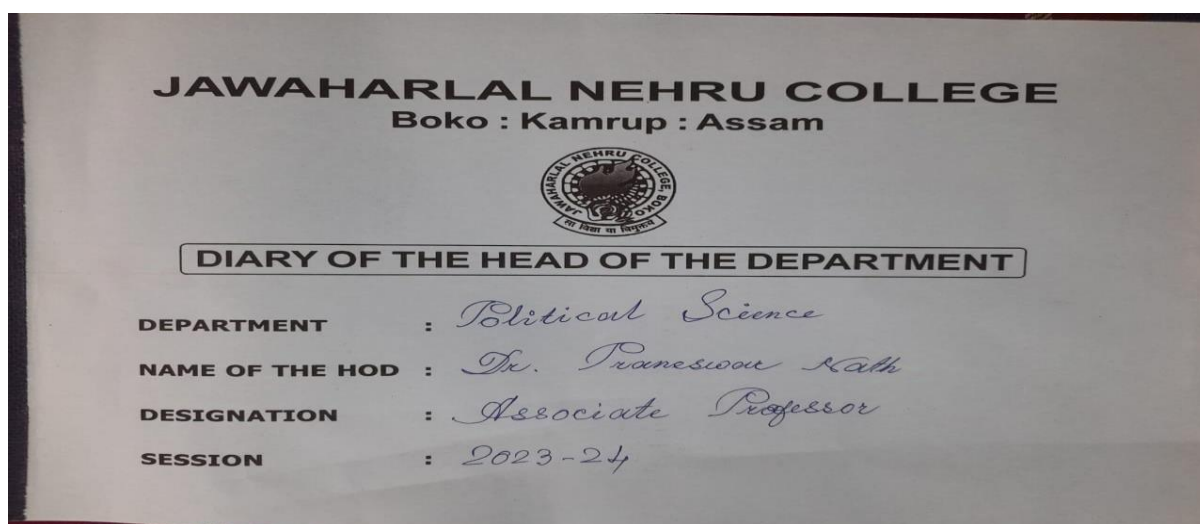 JAWAHARLAL NEHRU COLLEGE
Boko : Kamrup : Assam
JAWAHARLAL NEHRU COLLEGE, BOKO
सा विद्या या विमुक्तये
DIARY OF THE HEAD OF THE DEPARTMENT
DEPARTMENT : Political Science
NAME OF THE HOD : Dr. Praneswar Nath
DESIGNATION : Associate Professor
SESSION : 2023-24